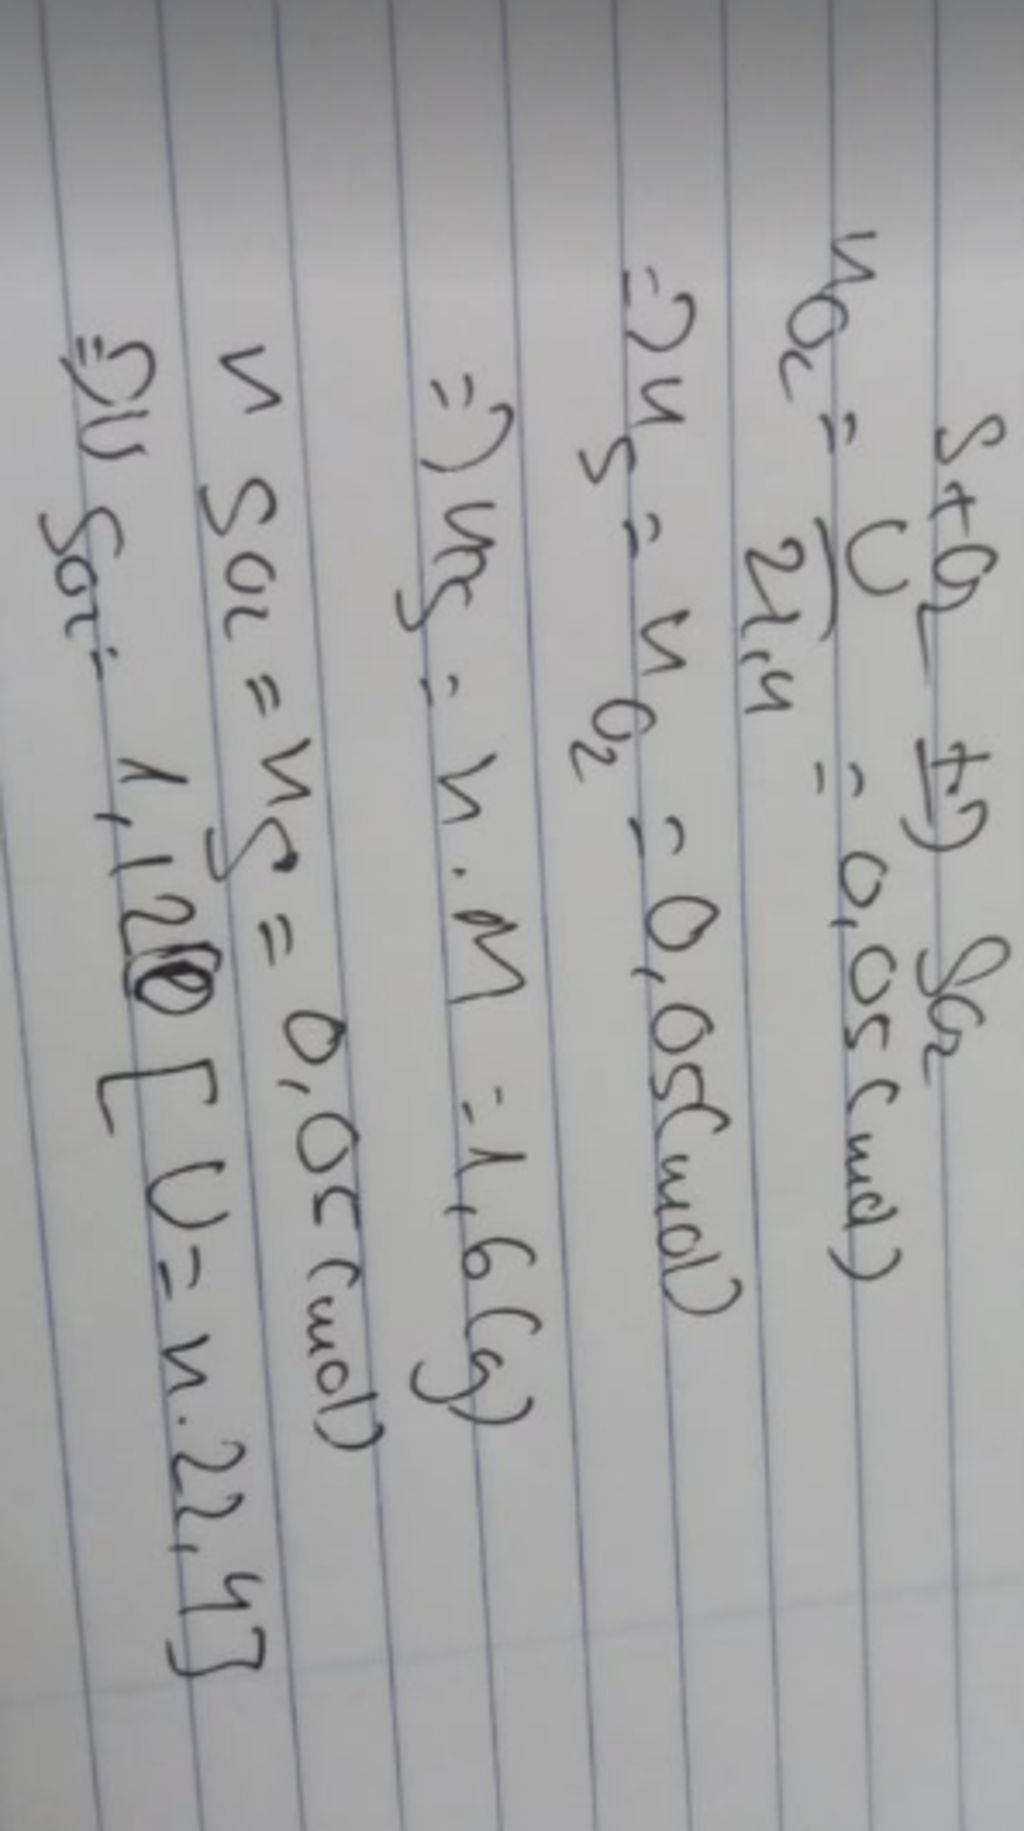 S + O2 t°→ SO2
nO2 = V/22,4 = 0,05 (mol)
=> nS = nO2 = 0,05 (mol)
=> mS = n . M = 1,6 (g)
n SO2 = nS = 0,05 (mol)
=> V SO2 = 1,12 [ V = n . 22,4 ]